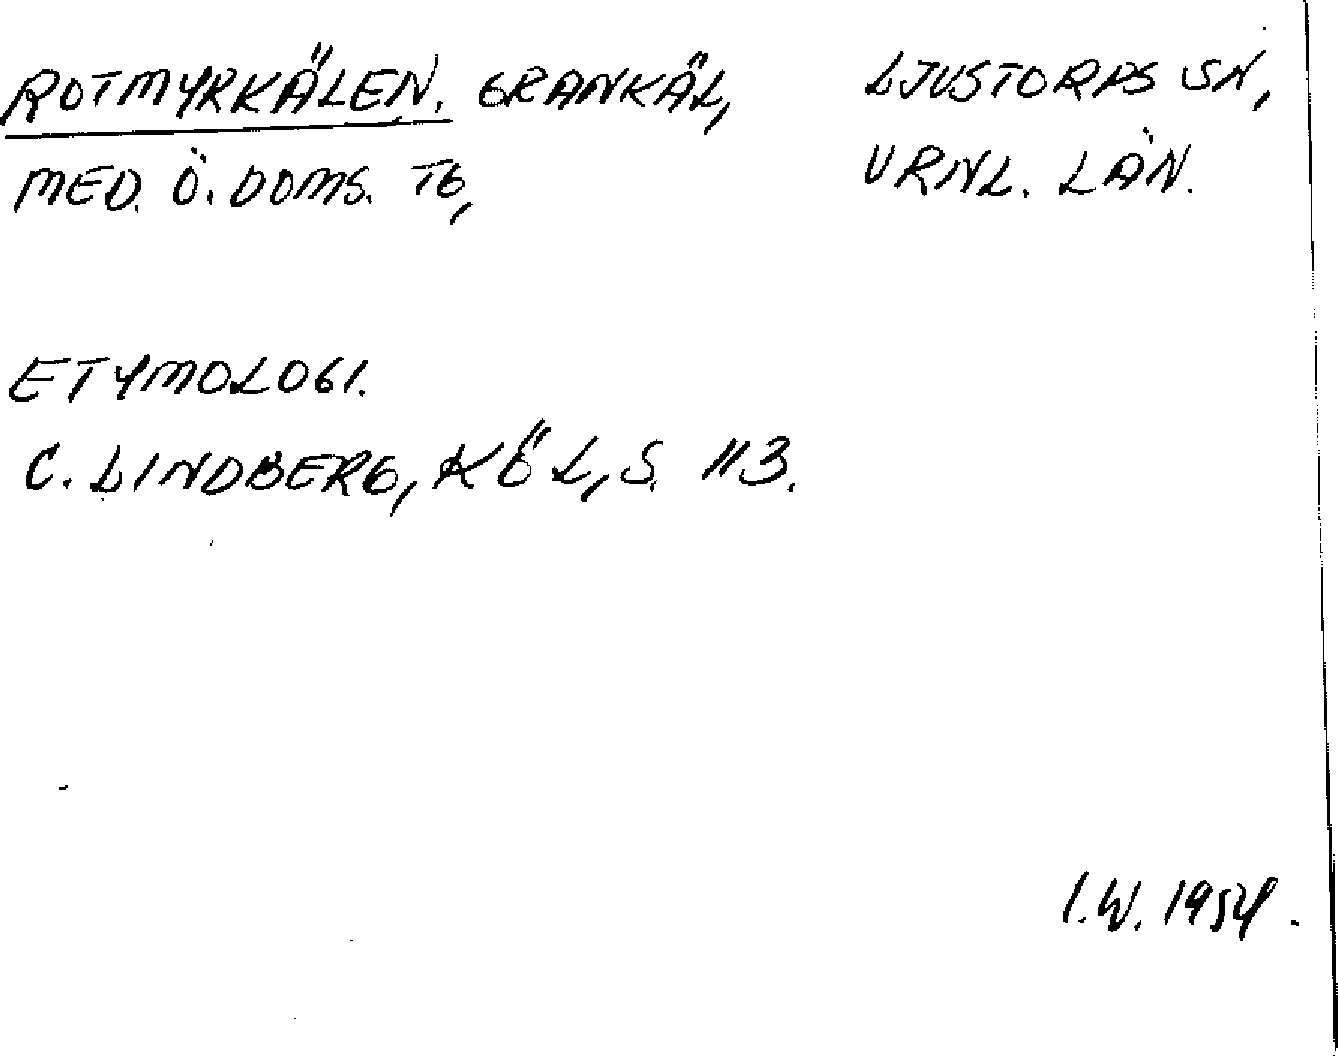 ROTMYRKÄLEN. GRANKÄL, LJUSTORPS SN,
MED. Ö. DOMS. TG, VRNL. LÄN.
ETYMOLOGI.
C. LINDBERG, KÖL, S. 113.
I.W. 1954.